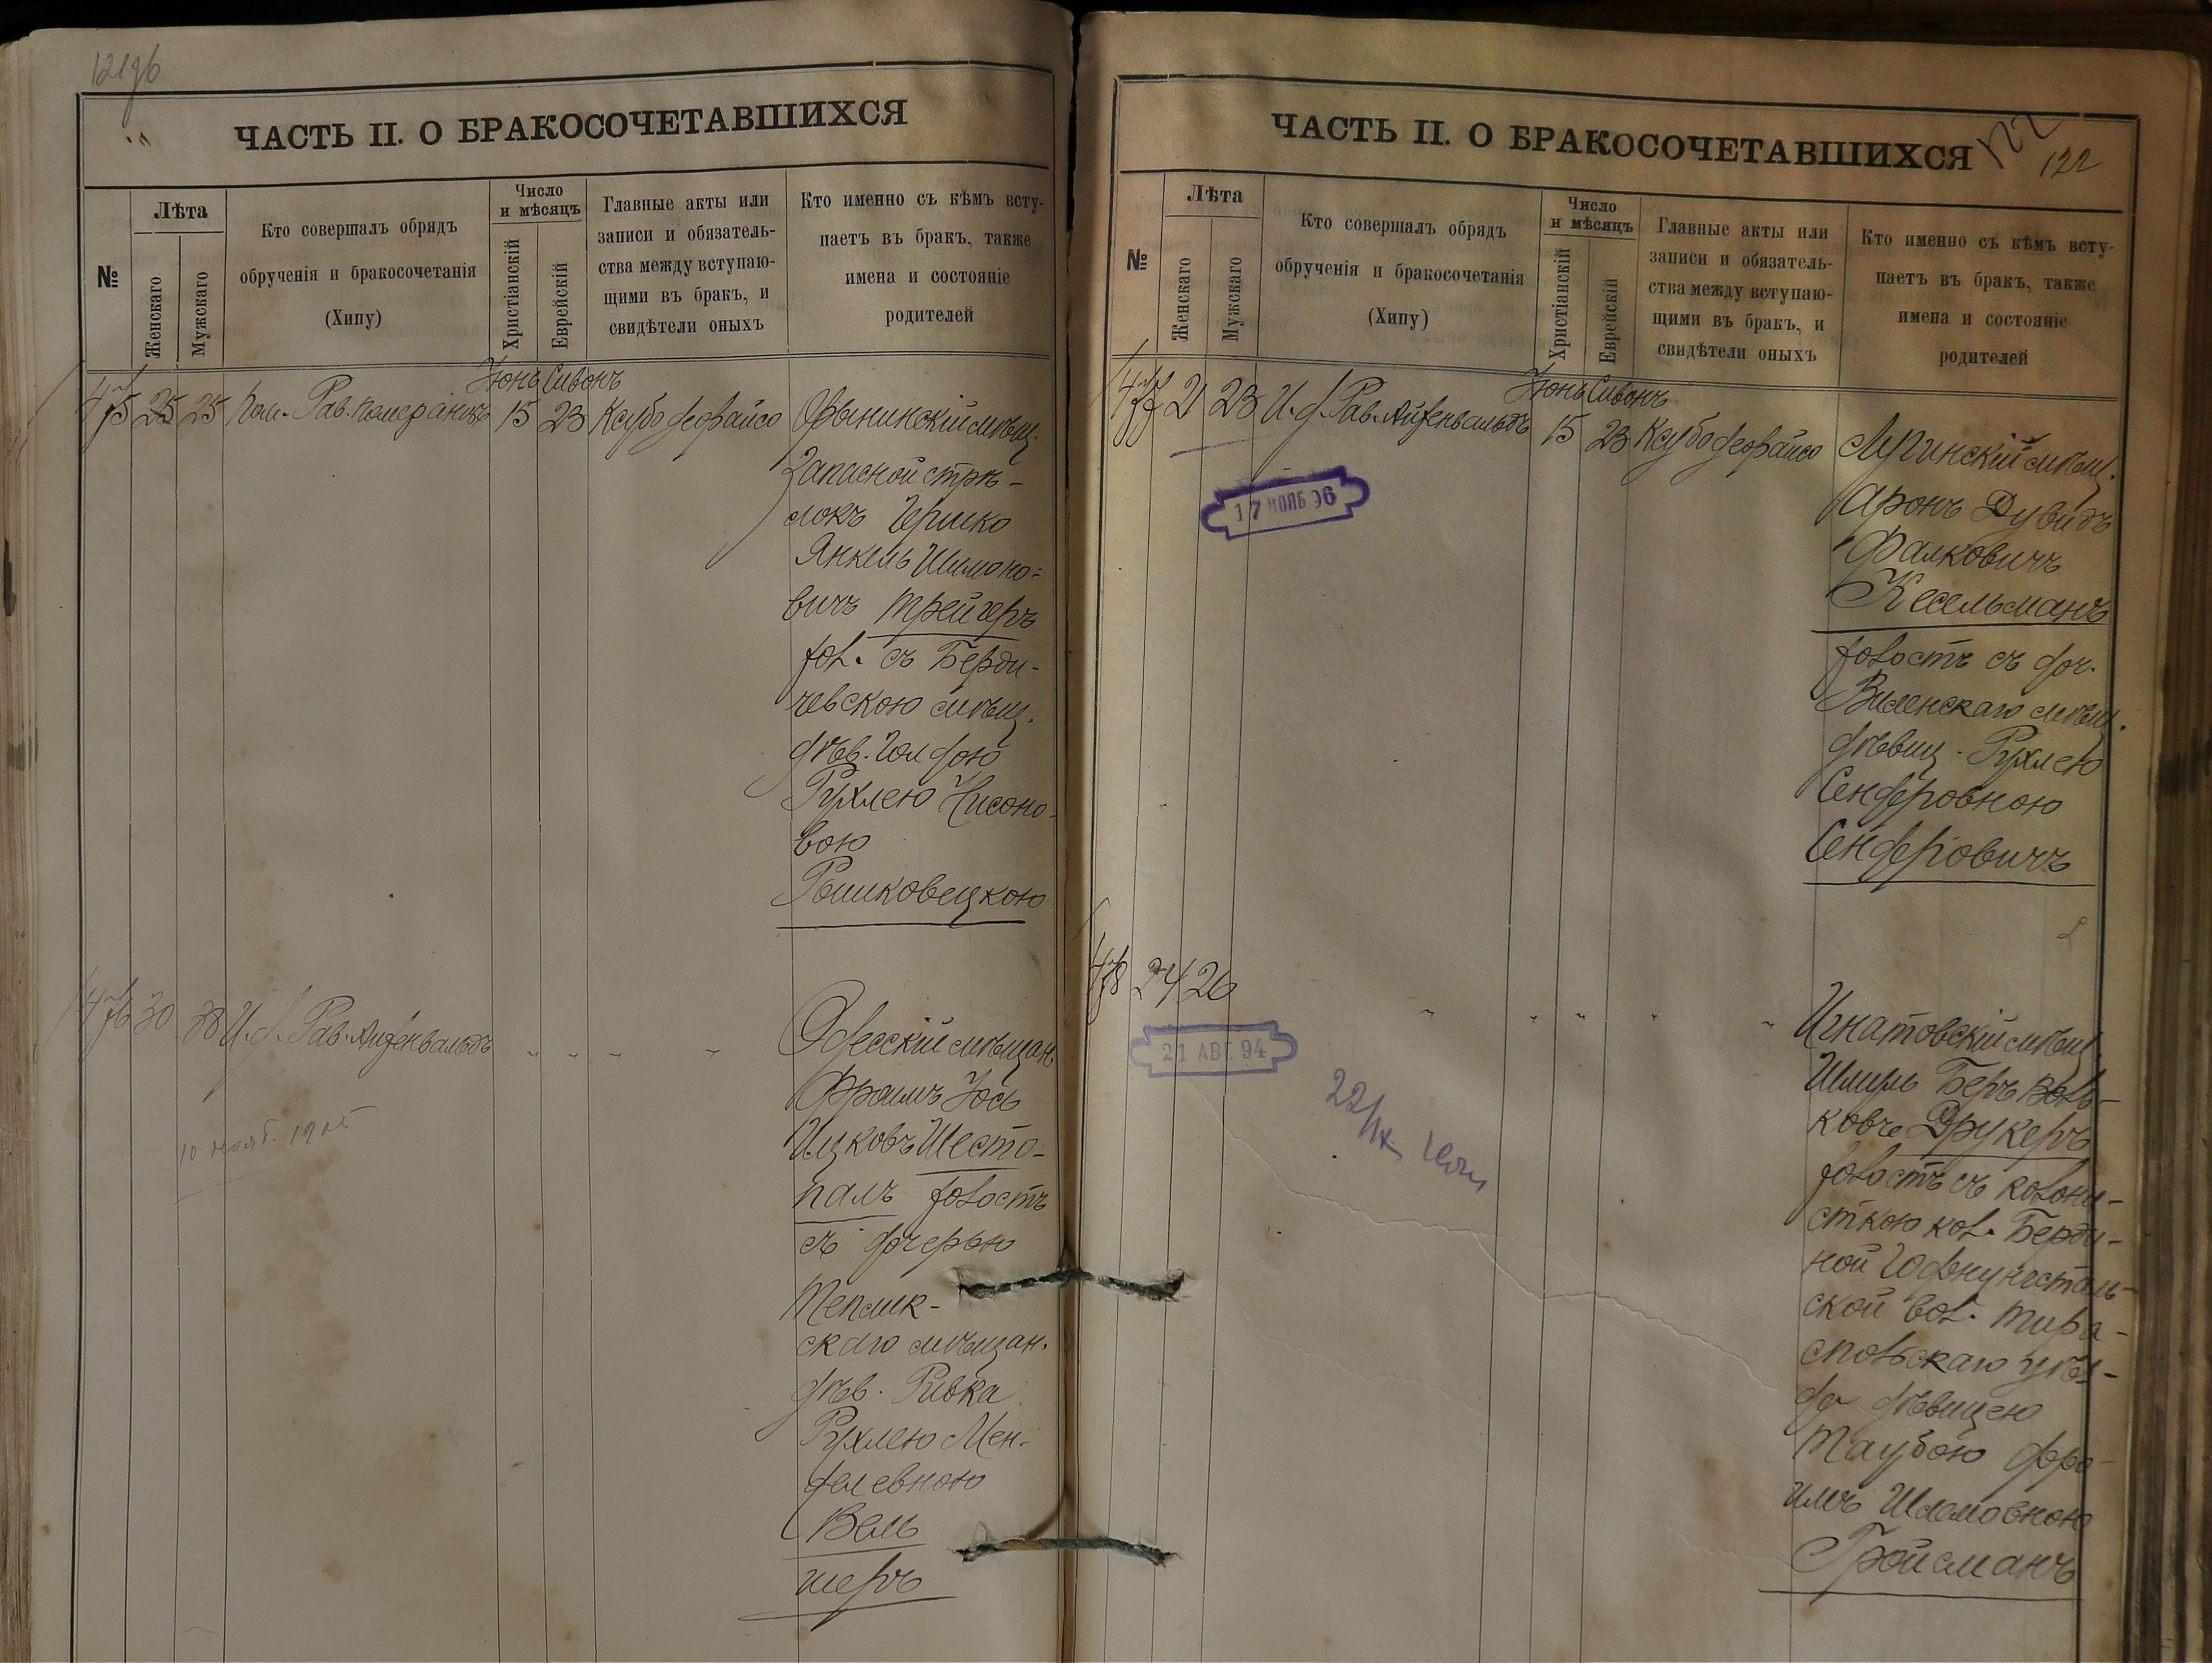 121 об
ЧАСТЬ II. О БРАКОСОЧЕТАВШИХСЯ
№
Лѣта
Женскаго
Мужскаго
Кто совершалъ обрядъ
обрученія и бракосочетанія
(Хипу)
Число
и мѣсяцъ
Христіанскій
Еврейскій
Главные акты или
записи и обязатель-
ства между вступаю-
щими въ бракъ, и
свидѣтели оныхъ
Кто именно съ кѣмъ всту-
паетъ въ бракъ, также
имена и состояніе
родителей
Іюнь Сивонъ
475 25 25 Пом. Рав. Померанцъ 15 23 Ксубо деорайсо
мѣщ.
Запасной стрѣ-
локъ Гершко
Янкель Шимоно-
вичъ Трейгеръ
хол. съ Берди-
чевскою мѣщ.
дѣв. Голдою
Рухлею Нисоно-
вою
Рашковецкою
476 30 38 И. д. Рав. Айзенвальдъ " " " "
Одесскій мѣщан.
Фроимъ Іось
Ицковъ Шесто-
палъ холостъ
съ дочерью
Тепликъ-
скаго мѣщан.
дѣв. Ривка
Рухлею Мен-
делевною
Вель
шеръ
10 нояб.
ЧАСТЬ II. О БРАКОСОЧЕТАВШИХСЯ
122
122
№
Лѣта
Женскаго
Мужскаго
Кто совершалъ обрядъ
обрученія и бракосочетанія
(Хипу)
Число
и мѣсяцъ
Христіанскій
Еврейскій
Главные акты или
записи и обязатель-
ства между вступаю-
щими въ бракъ, и
свидѣтели оныхъ
Кто именно съ кѣмъ всту-
паетъ въ бракъ, также
имена и состояніе
родителей
Іюнь Сивонъ
477 21 23 И. д. Рав. Айзенвальдъ 15 23 Ксубо деорайсо
мѣщ.
Аронъ Дувидъ
Фалковичъ
Кесельманъ
холостъ съ доч.
Виленскаго мѣщ.
дѣвиц. Рухлею
Сендеровною
Сендеровичъ
17 НОЯБ 96
478 24 26 " " " " "
Игнатовскій мѣщ.
Шмуль Беръ Воль-
ковъ Друкеръ
холостъ съ колони-
сткою кол. Берди-
ной Гофнунгсталь-
ской вол. Тира-
спольскаго уѣз-
да дѣвицею
Таубою Фро-
имъ Шлемовною
Гройсманъ
21 АВГ. 94
22/IX